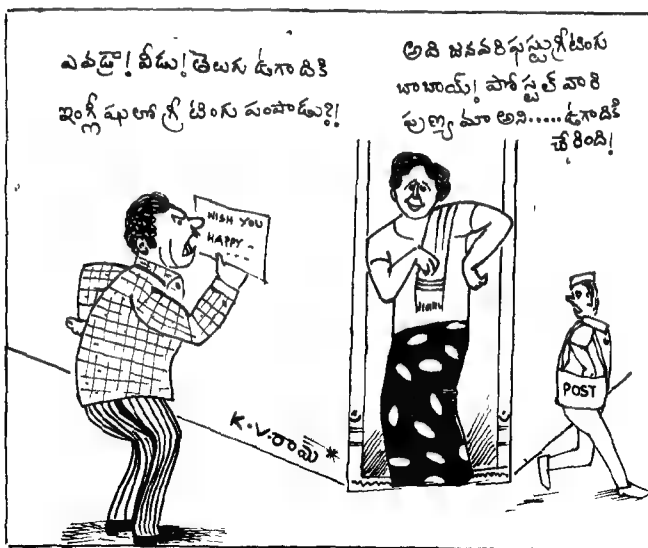 ఎవడ్రా! వీడు! తెలుగు ఉగాదికి
ఇంగ్లీషులో గ్రీటింగు పంపాడు?!
అది జనవరి ఫస్టు గ్రీటింగు
బాబాయ్! పోస్టల్ వారి
పుణ్యమా అని.....ఉగాదికి
చేరింది!
WISH YOU
HAPPY..
POST
K.V.రామ్